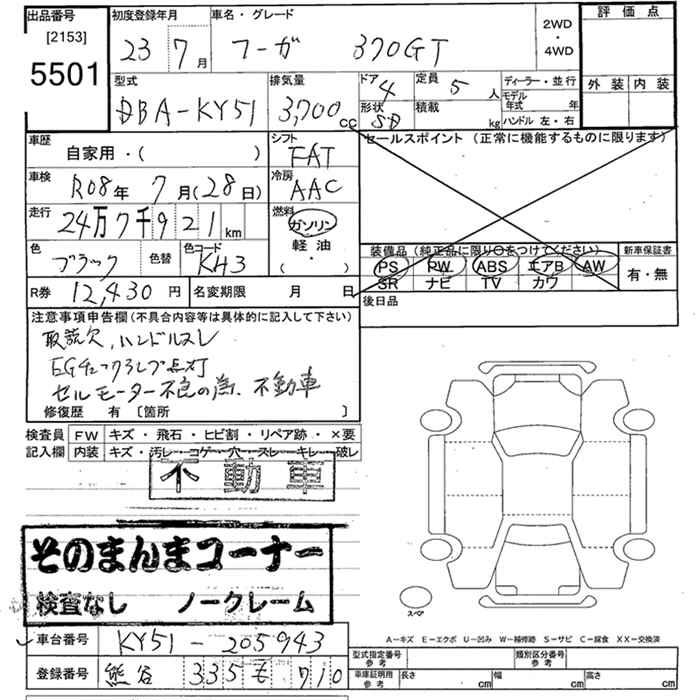 出品番号
[2153]
5501
初度登録年月
23 7月
車名・グレード
フーガ 370GT
2WD
・
4WD
評価点
外装 内装
型式
DBA-KY51
排気量
3,700cc
ドア 4
形状 SD
定員 5人
積載 kg
ディーラー・並行
モデル年式 年
ハンドル 左・右
車歴
自家用・( )
シフト
FAT
セールスポイント (正常に機能するものに限ります)
車検
R08年 7月(28日)
冷房
AAC
走行
24万7千921km
燃料
ガソリン
軽油
( ・ )
色
ブラック
色替
色コード
KH3
装備品 (純正品に限り〇をつけてください)
PS PW ABS エアB AW
SR ナビ TV カワ
新車保証書
有・無
R券 12,430円
名変期限 月 日
後日品
注意事項申告欄(不具合内容等は具体的に記入して下さい)
取説欠、ハンドルスレ
EGチェックランプ点灯
セルモーター不良の為、不動車
修復歴 有 [箇所 ]
検査員 FW キズ・飛石・ヒビ割・リペア跡・×要
記入欄 内装 キズ・汚レ・コゲ・穴・スレ・キレ・破レ
不動車
そのまんまコーナー
検査なし ノークレーム
スペア
A−キズ E−エクボ U−凹み W−補修跡 S−サビ C−腐食 XX−交換済
車台番号 KY51-205943
登録番号 熊谷 335 も 710
型式指定番号
参考
類別区分番号
参考
車庫証明用
参考
長さ cm
幅 cm
高さ cm